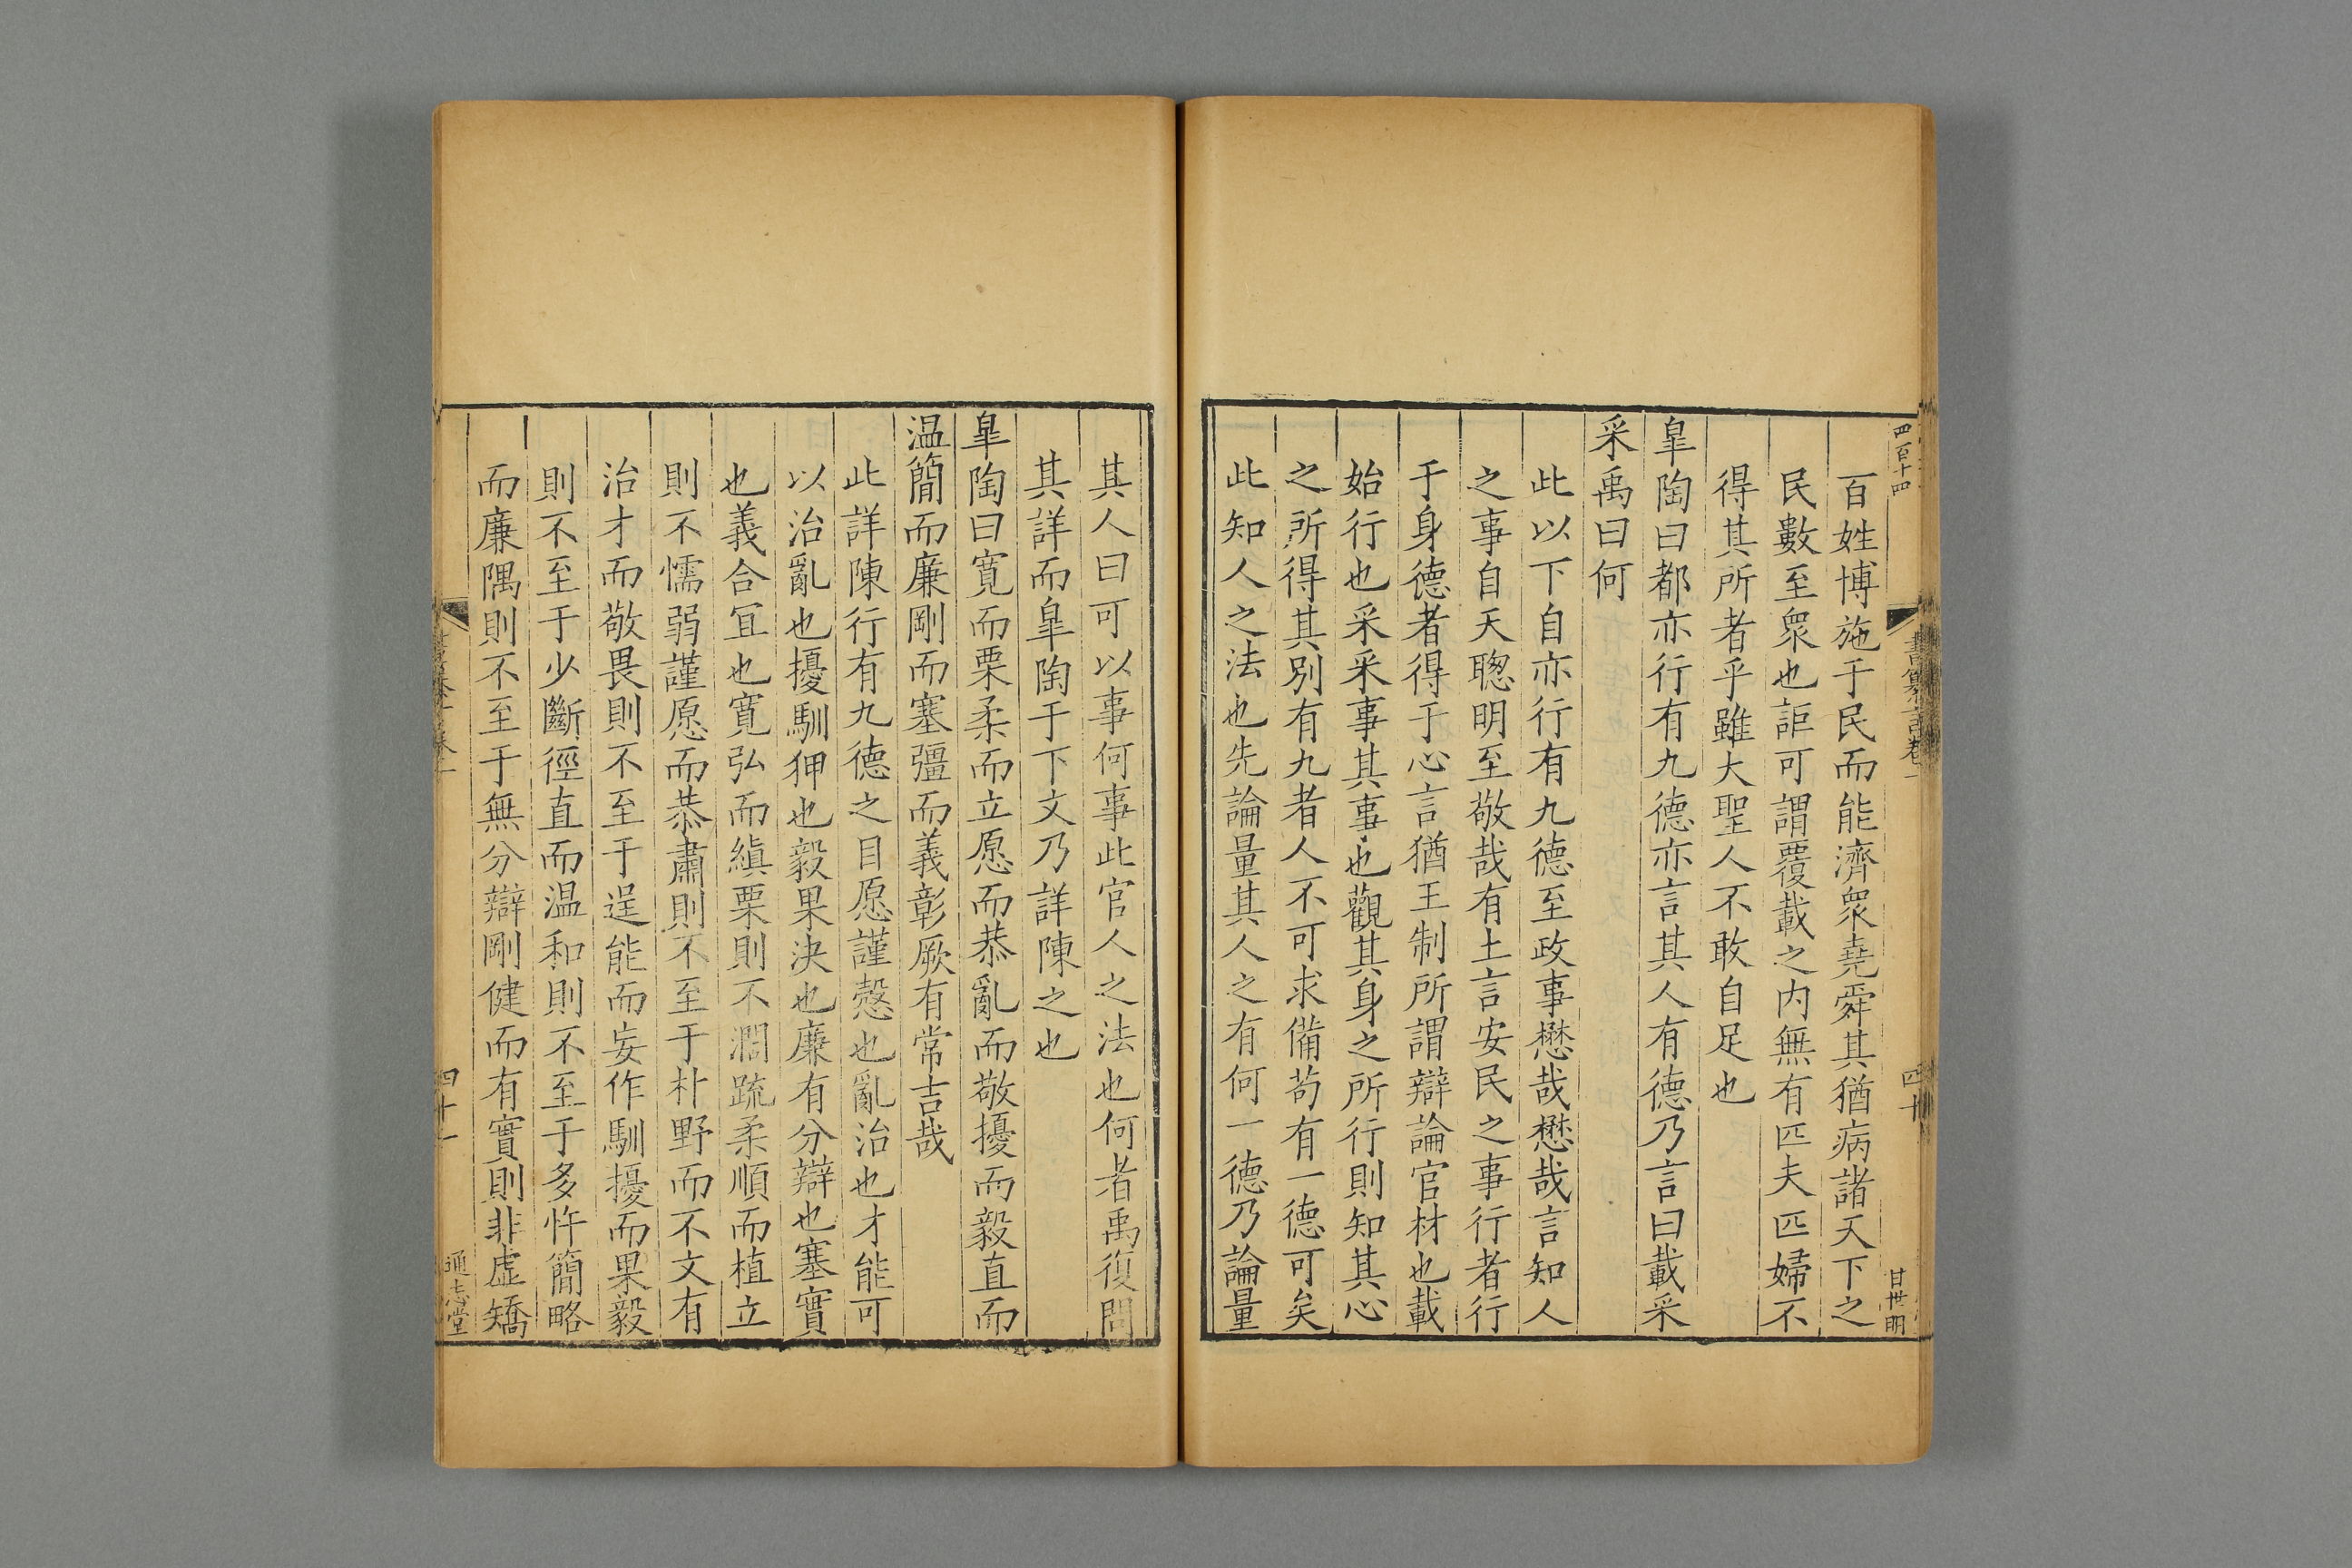 四百十四
書纂言卷一
四十
甘世明
百姓博施于民而能濟衆堯舜其猶病諸天下之
民數至衆也詎可謂覆載之内無有匹夫匹婦不
得其所者乎雖大聖人不敢自足也
皐陶曰都亦行有九德亦言其人有德乃言曰載采
采禹曰何
此以下自亦行有九德至政事懋哉懋哉言知人
之事自天聰明至敬哉有土言安民之事行者行
于身德者得于心言猶王制所謂辯論官材也載
始行也采采事其事也觀其身之所行則知其心
之所得其別有九者人不可求備茍有一德可矣
此知人之法也先論量其人之有何一德乃論量
其人曰可以事何事此官人之法也何者禹復問
其詳而皐陶于下文乃詳陳之也
皐陶曰寛而栗柔而立愿而恭亂而敬擾而毅直而
温簡而廉剛而塞彊而義彰厥有常吉哉
此詳陳行有九德之目愿謹慤也亂治也才能可
以治亂也擾馴狎也毅果決也廉有分辯也塞實
也義合宜也寛弘而縝栗則不濶疏柔順而植立
則不懦弱謹愿而恭肅則不至于朴野而不文有
治才而敬畏則不至于逞能而妄作馴擾而果毅
則不至于少斷徑直而温和則不至于多忤簡略
而廉隅則不至于無分辯剛健而有實則非虚矯
四十一
通志堂